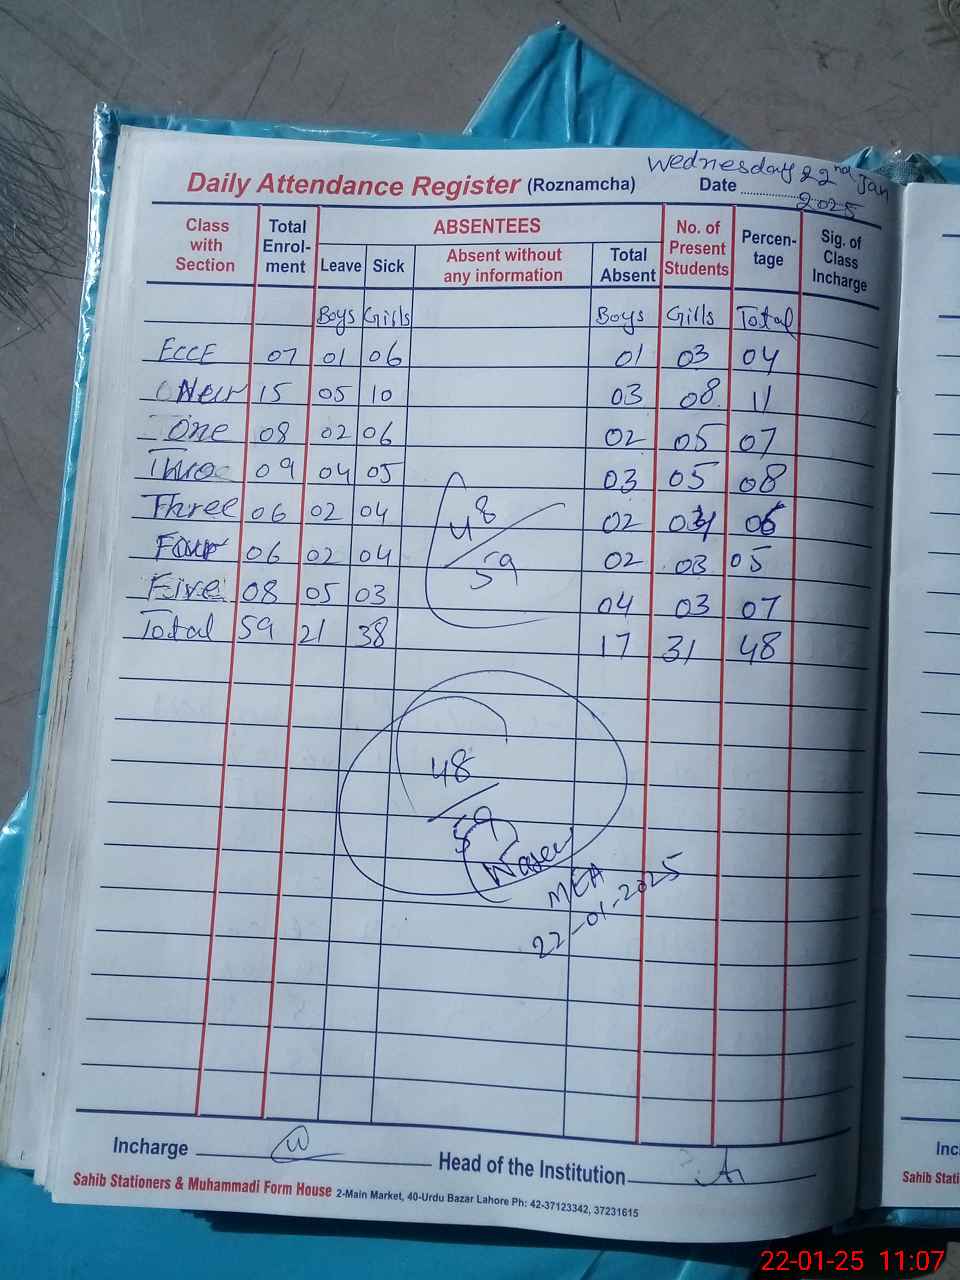 Wednesday 22nd Jan
Daily Attendance Register (Roznamcha) Date 2025
Class with Section Total Enrol-ment ABSENTEES No. of Present Students Percen-tage Sig. of Class Incharge
Leave Sick Absent without any information Total Absent
Boys Girls Boys Girls Total
ECCE 07 01 06 01 03 04
15 05 10 03 08 11
One 08 02 06 02 05 07
09 04 05 03 05 08
Three 06 02 04 02 06
Four 06 02 04 02 03 05
Five 08 05 03 04 03 07
Total 59 21 38 17 31 48
48
59
48
59
MEA
22-01-2025
Incharge Head of the Institution
Sahib Stationers & Muhammadi Form House 2-Main Market, 40-Urdu Bazar Lahore Ph: 42-37123342, 37231615
Sahib Stati
22-01-25 11:07